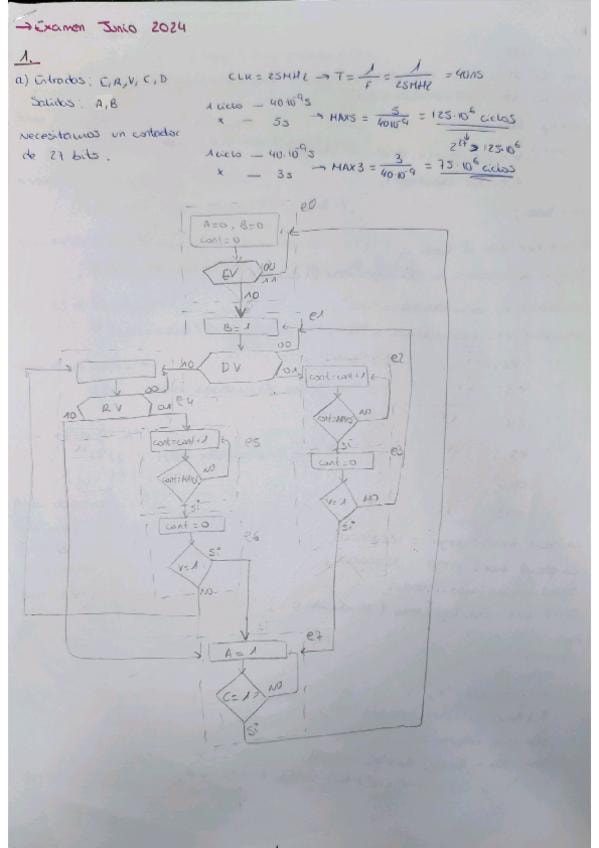 → Examen Junio 2024
1.
a) Entradas: E, R, V, C, D
Salidas: A, B
Necesitamos un contador
de 27 bits.
CLK = 25MHz → T = 1/F = 1/25MHz = 40ns
1 ciclo — 40·10⁻⁹s
x — 5s → MAX5 = 5/40·10⁻⁹ = 125·10⁶ ciclos
2²⁷ > 125·10⁶
1 ciclo — 40·10⁻⁹s
x — 3s → MAX3 = 3/40·10⁻⁹ = 75·10⁶ ciclos
e0
A=0, B=0
cont=0
EV
00
11
10
e1
B=1
00
DV
10
01
e2
cont=cont+1
cont=MAX5
NO
Si
e3
cont=0
V=1
NO
Si
00
RV
10
01
e4
cont=cont+1
e5
NO
Si
cont=0
e6
V=1
Si
NO
e7
A=1
C=1?
NO
Si